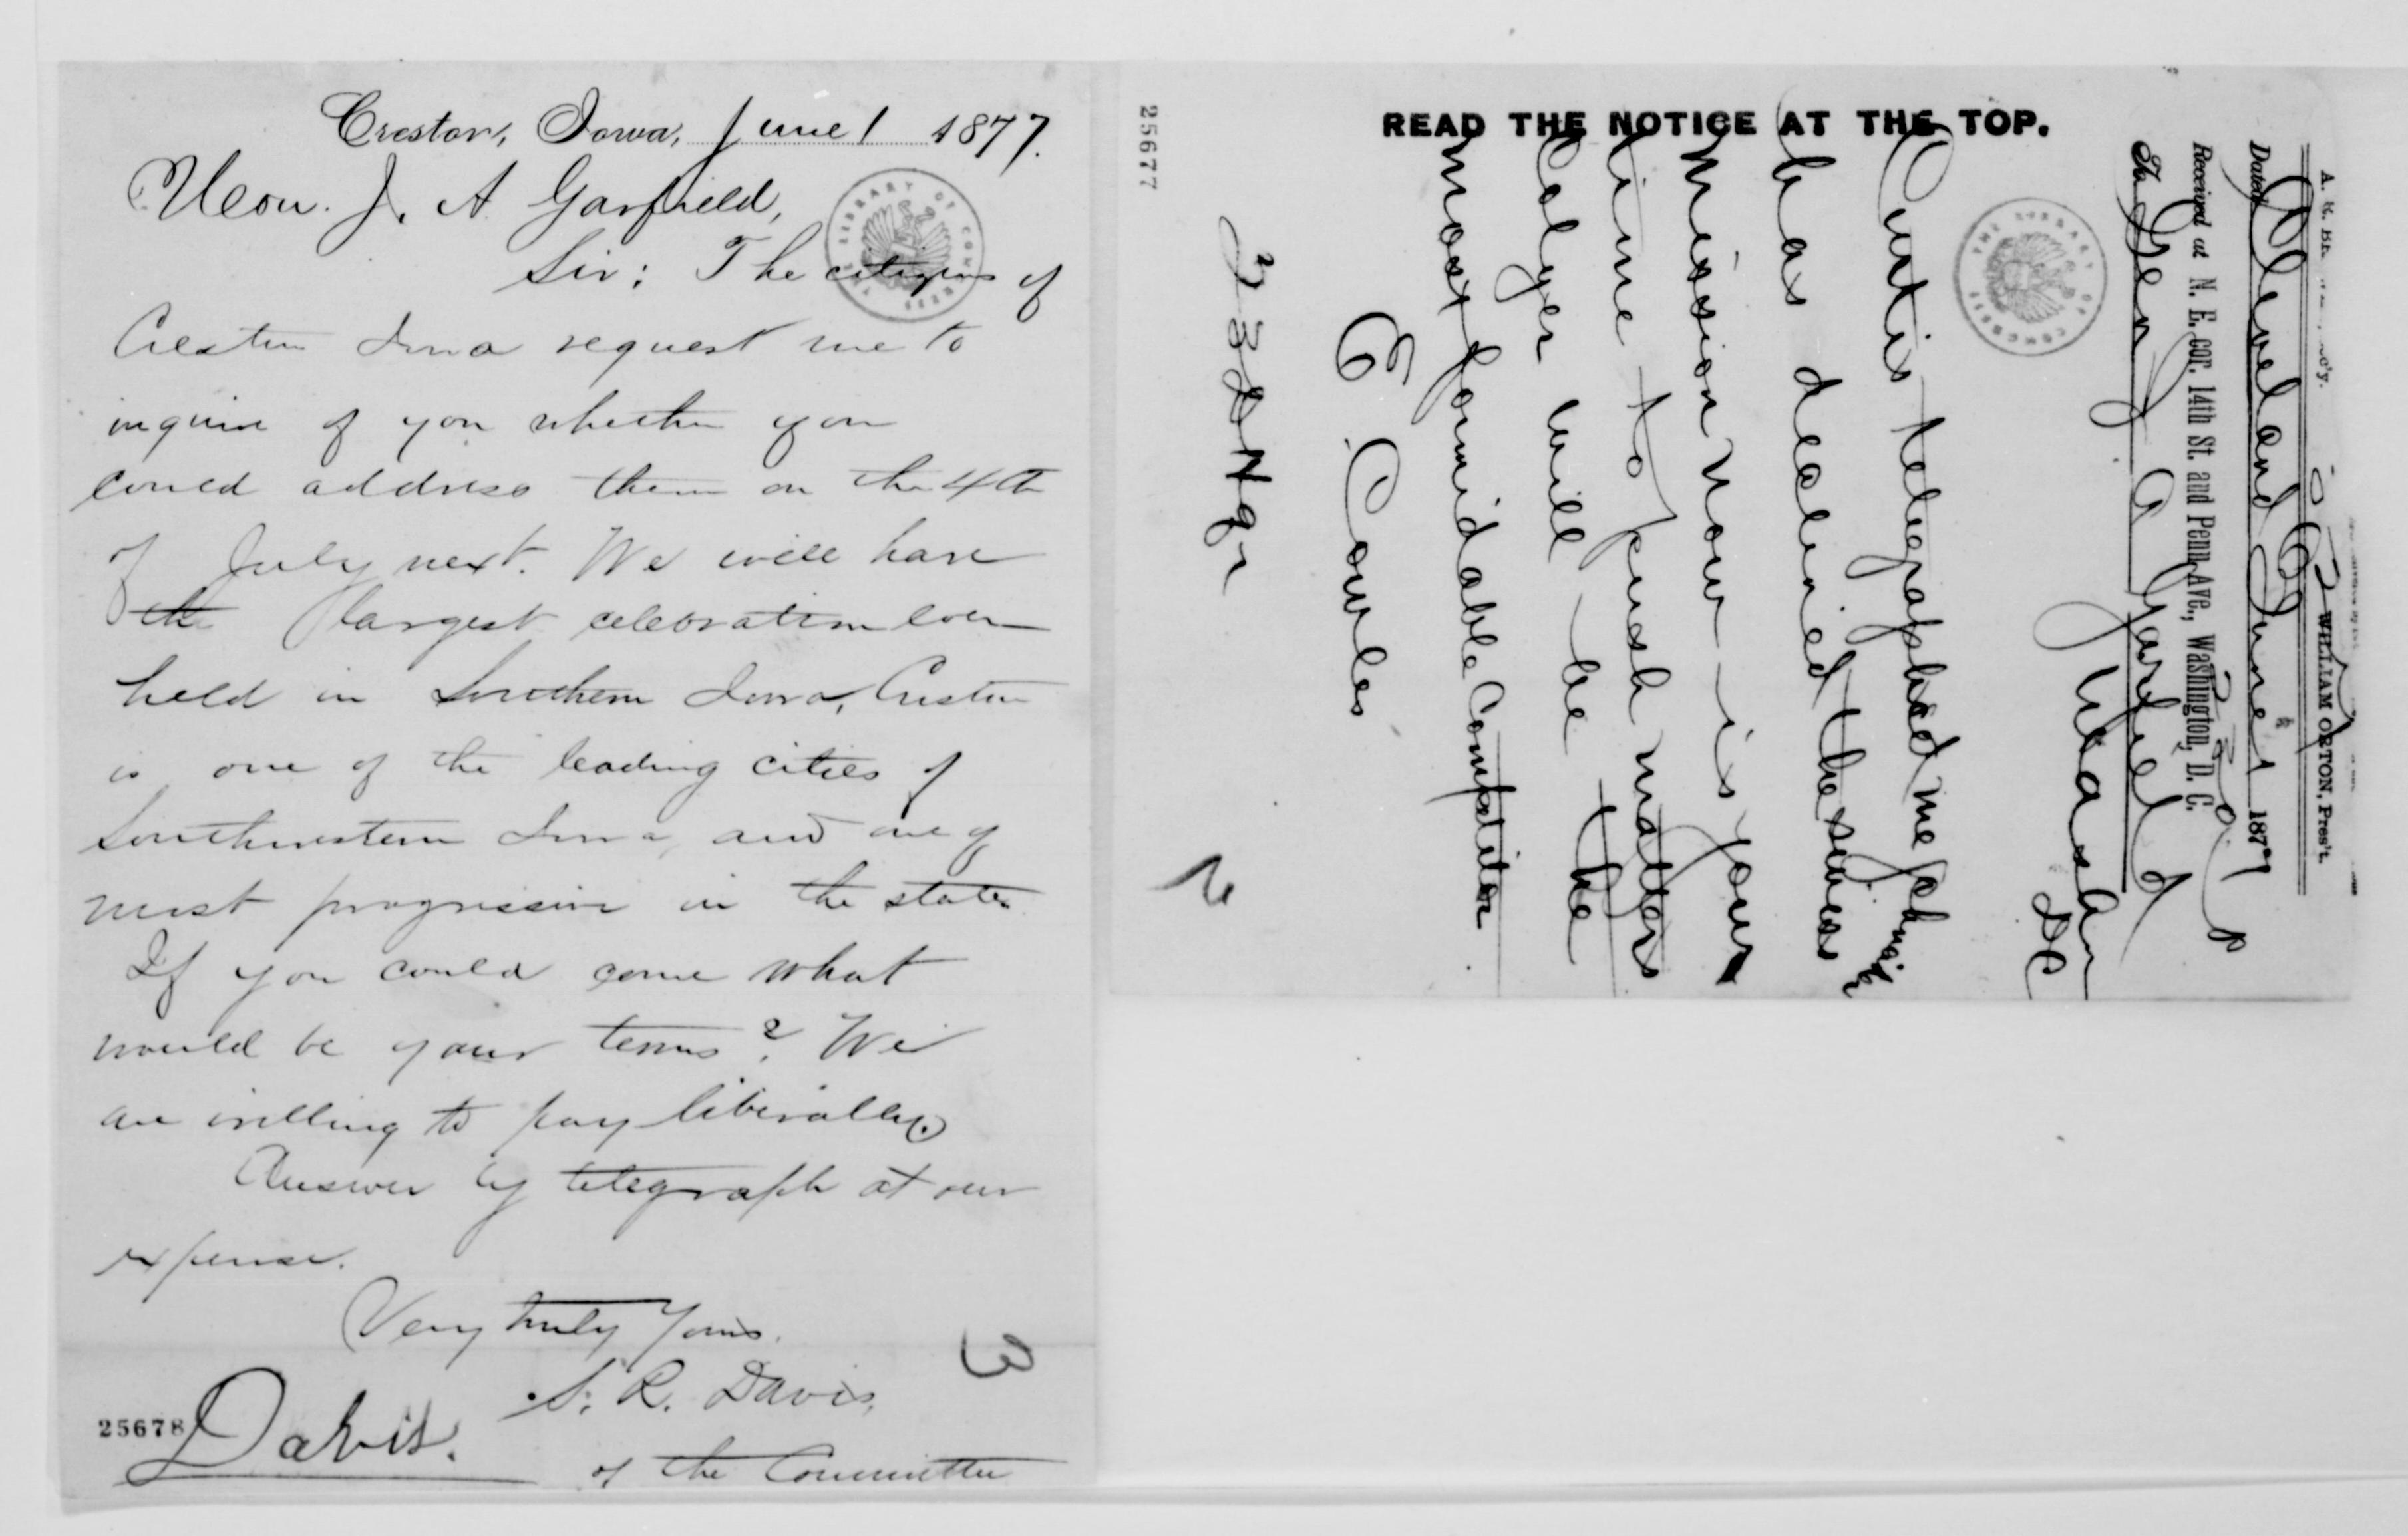 Creston, Iowa, June 1 1877.
Hon. J. A Garfield,
Sir: The citizens of
Creston Iowa request me to
inquire of you whether you
could address them on the 4th
of July next. We will have
the largest celebration ever
held in Southern Iowa, Creston
is one of the leading cities of
Southwestern Iowa, and one of
most progressive in the state.
If you could come what
would be your terms? We
are willing to pay liberally.
Answer by telegraph at our
expense.
Very truly Yours.
S. R. Davis,
of the Committee
3
25678
Davis.
25677
READ THE NOTICE AT THE TOP.
WILLIAM ORTON, Pres't.
Dated Cleveland O June 1 1877
Received at N. E. cor. 14th St. and Penn. Ave., Washington, D. C.
To Gen J A Garfield
Washn
DC
Curtis telegraphed me
has declined the
mission now is your
time to push matters
Colyer will be the
most formidable Competitor
E. Cowles
THE LIBRARY OF CONGRESS
THE LIBRARY OF CONGRESS